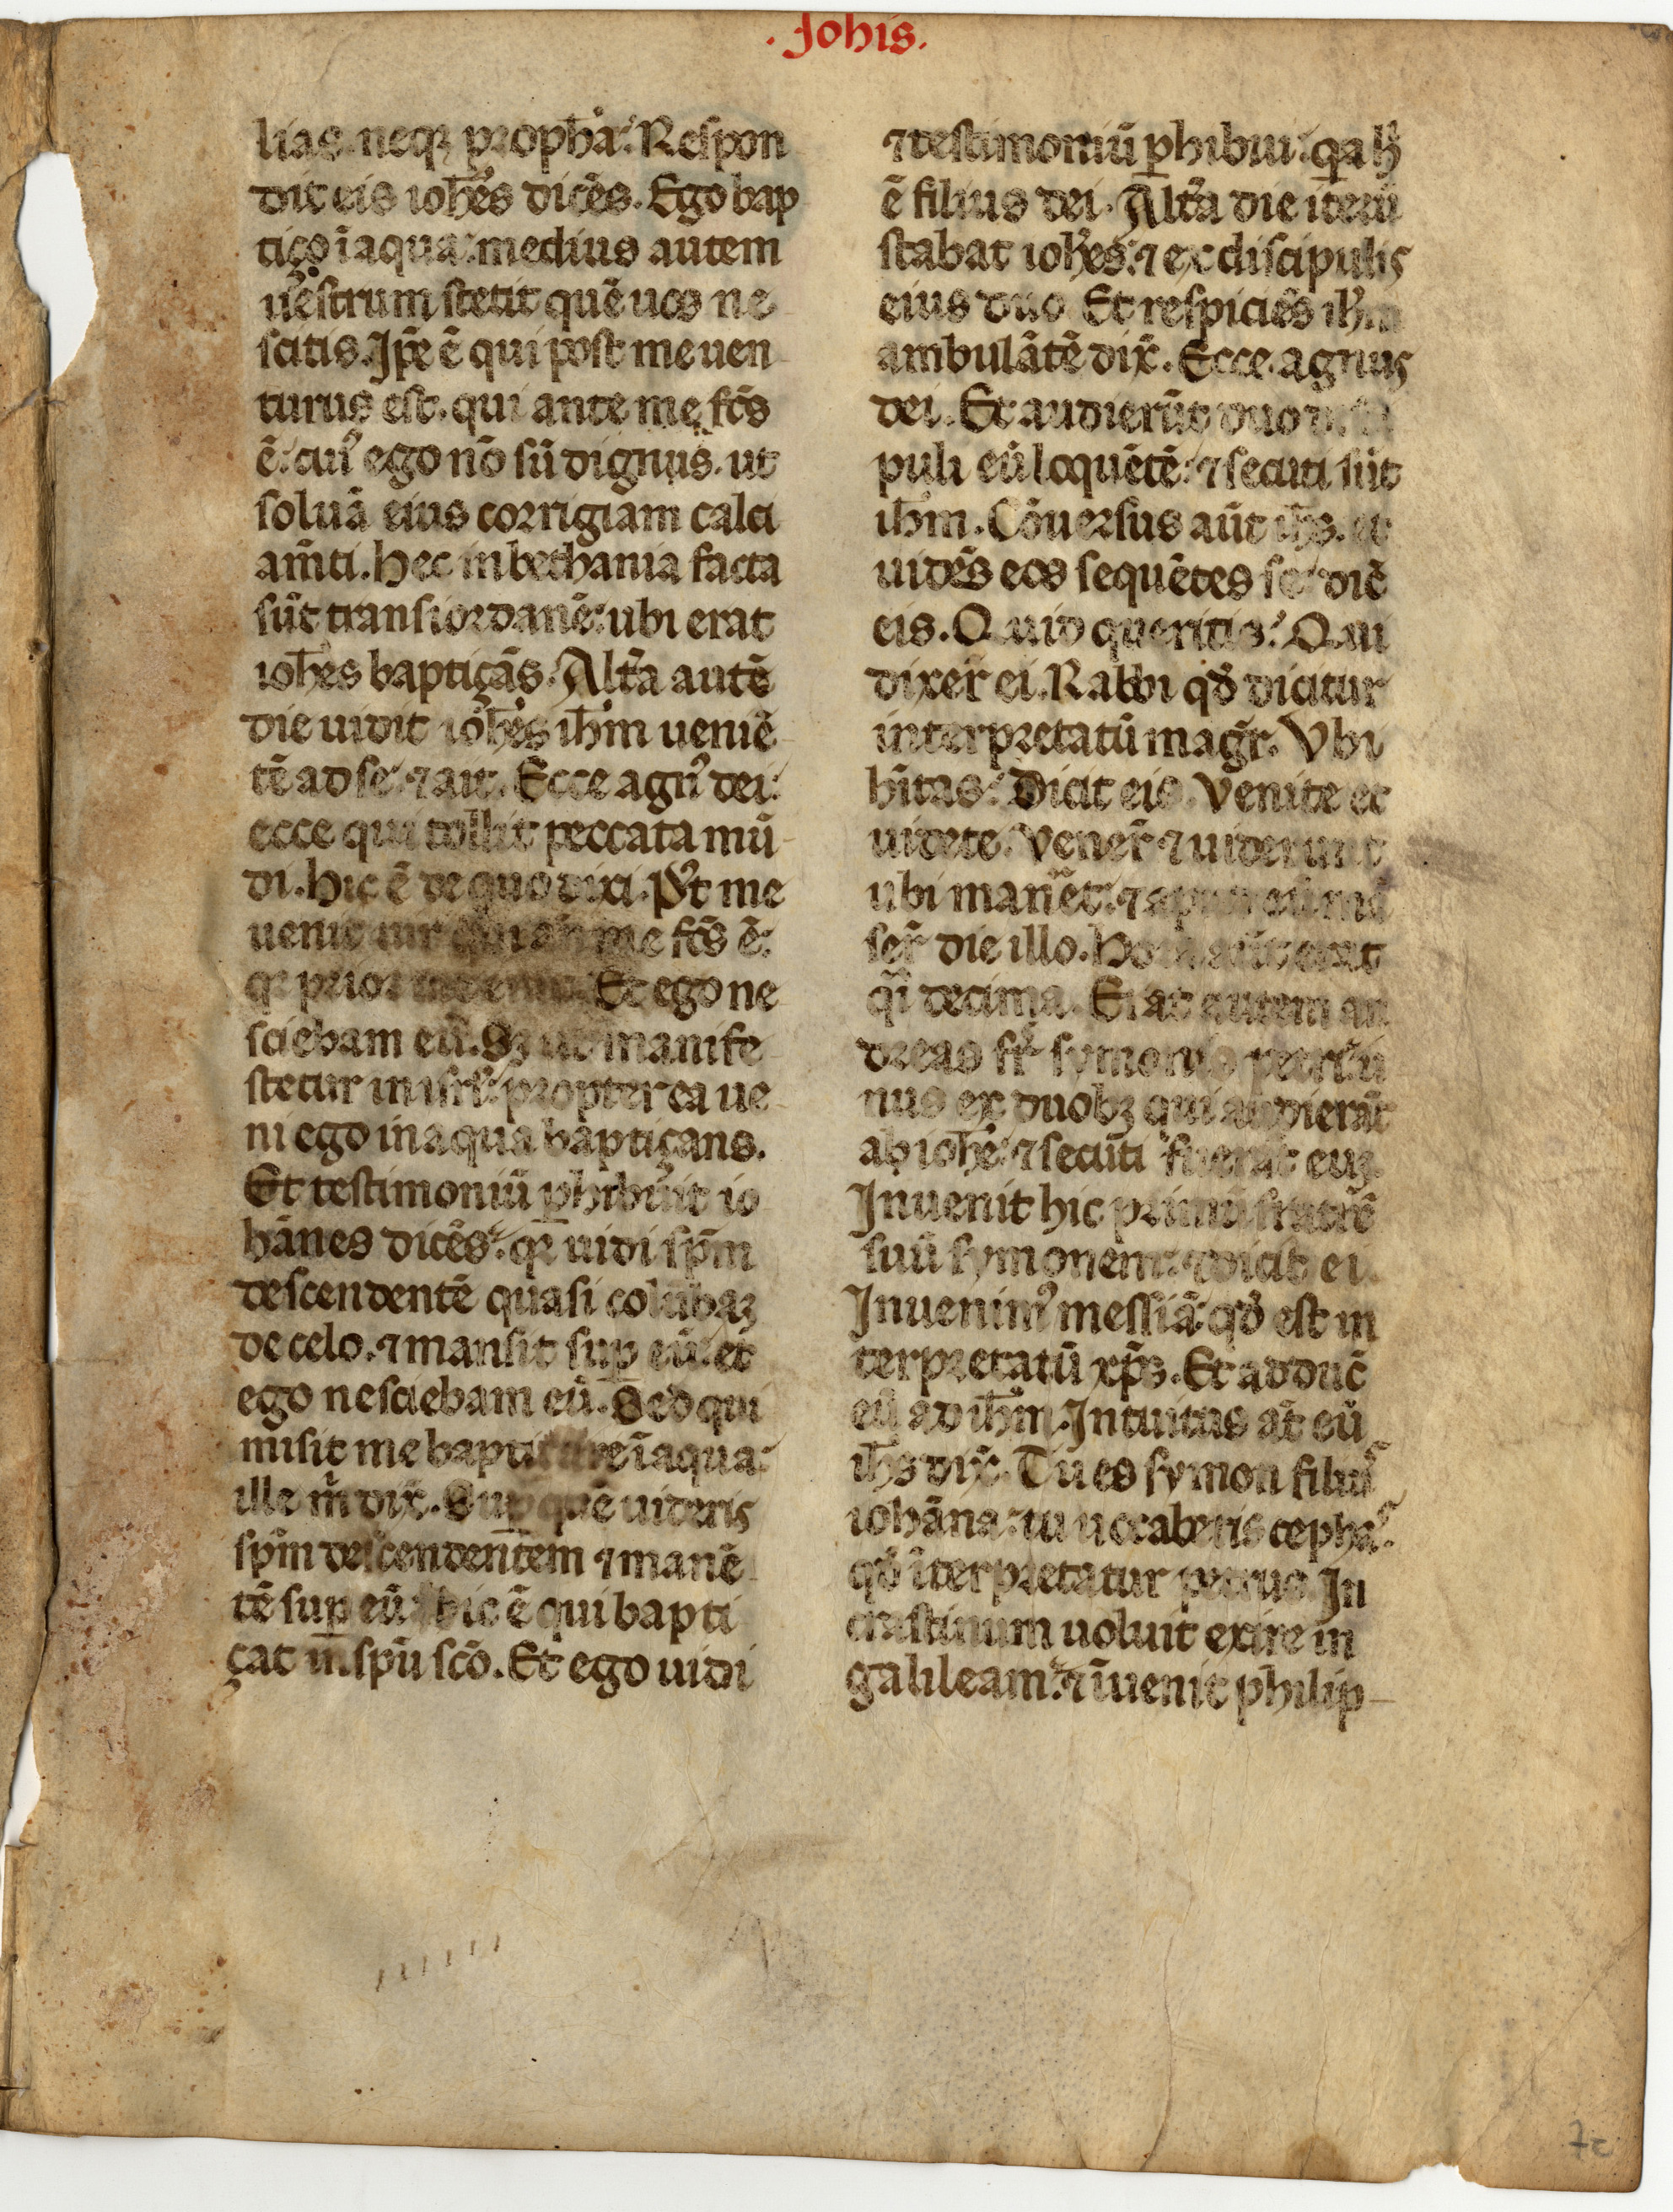 . Johis.
lias. neqꝫ proph̄a. Respon
dit eis ioh̄es dicēs. Ego bap
tiço ī aqua: medius autem
ūestrum stetit quē uos ne
scitis. Ip̄e ē qui post me uen
turus est. qui ante me fc̄s
ē: cuiꝰ ego nō sū dignus. ut
soluā eius corrigiam calci
am̄ti. Hec in bethania facta
sūt trans iordanē: ubi erat
ioh̄es baptiçās. Alt̄a autē
die uidit ioh̄es ih̄m uenie
tē ad se: ⁊ ait. Ecce agnꝰ dei:
ecce qui tollit peccata mū
di. Hic ē de quo dixi. Pꝰt me
uenit uir me fc̄s ē:
qꝛ prior Et ego ne
sciebam eū. Sꝫ ut manife
stetur in isrl̄: propterea ue
ni ego in aqua baptiçans.
Et testimoniū ꝑhibuit io
hānes dicēs: qꝛ uidi sp̄m
descendentē quasi colūbaꝫ
de celo. ⁊ mansit suꝑ eū. et
ego nesciebam eū. Sed qui
misit me ī aqua:
ille m̄ dix̄. Suꝑ quē uideris
sp̄m descendentem ⁊ manē
tē suꝑ eū hic ē qui bapti
çat in sp̄u sc̄o. Et ego uidi
⁊ testimoniū ꝑhibui: qꝛa h̄
ē filius dei. Alt̄a die iterū
stabat ioh̄es: ⁊ ex discipulis
eius duo Et respiciēs
ambulātē dix̄. Ecce. agnus
dei. Et audierūt duo
puli eū loquētē: ⁊ secuti sūt
ih̄m. Cōuersus aūt ih̄s. et
uidēs eos sequētes se: dic̄
eis. Quid queritis? Qui
dixer̄ ei. Rabbi qđ dicitur
interpretatū maḡr. Vbi
h̄itas? Dicit eis. Venite et
uidete. Vener̄ ⁊ uiderunt
ubi man̄et: ⁊ apud eū mā
ser̄ die illo. Hora aūt erat
qͣi decima. Erat autem an
dreas fr̄ symonis petri: u
nus ex duobꝫ qui audierāt
ab ioh̄e: ⁊ secuti fuerāt euꝫ.
Inuenit hic primū fratrē
suū symonem: ⁊ dicit ei.
Inuenimꝰ messiā: qđ est in
terpretatū xp̄s. Et adduc̄
eū ad ih̄m. Intuitus āt eū
ih̄s dix̄. Tu es symon filiuꝰ
iohāna: tu uocaberis cephas.
qđ īterpretatur petrus. In
crastinum uoluit exire in
galileam: ⁊ īuenit philip-
7c